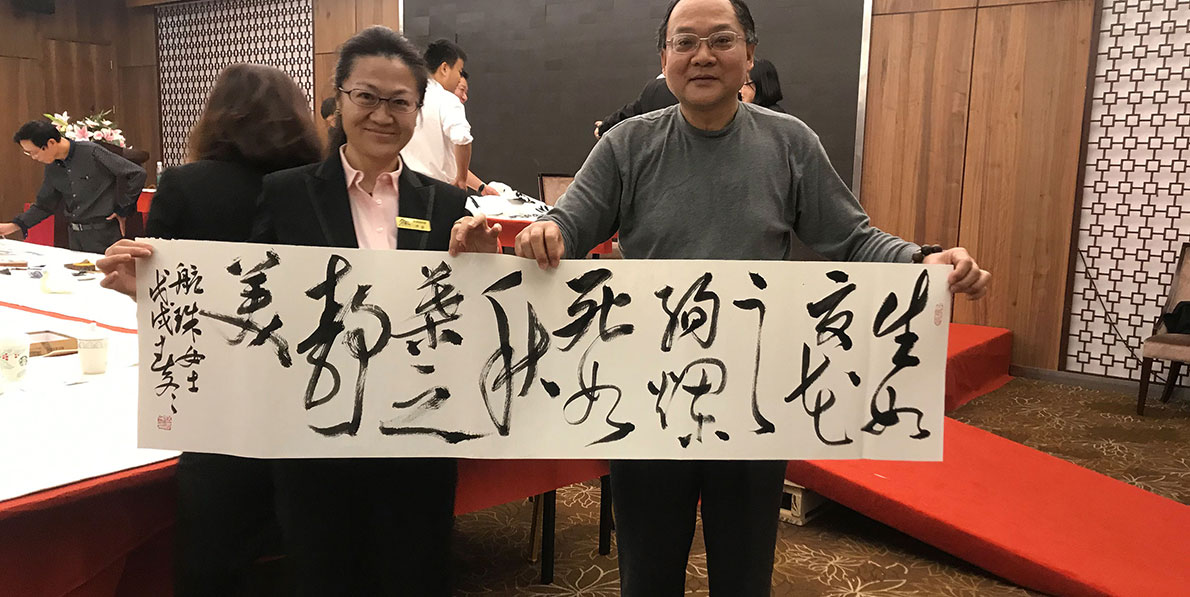 生如
夏花
之
絢爛
死如
秋
葉之
靜
美
航珠女士
戊戌